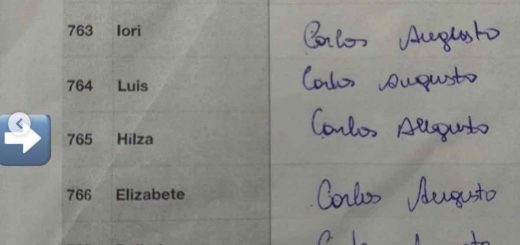 763 Iori Carlos Augusto
764 Luis Carlos Augusto
765 Hilza Carlos Augusto
766 Elizabete Carlos Augusto